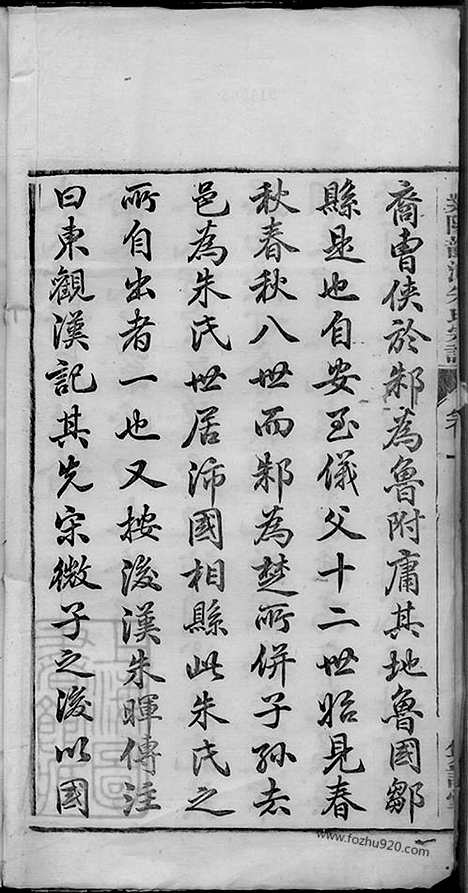 裔曹俠於邾為魯附庸其地魯國鄒
縣是也自安至儀父十二世始見春
秋春秋八世而邾為楚所併子孫去
邑為朱氏世居沛國相縣此朱氏之
所自出者一也又按後漢朱暉傳注
曰東觀漢記其先宋微子之後以國
卷一
www.fozhu920.com